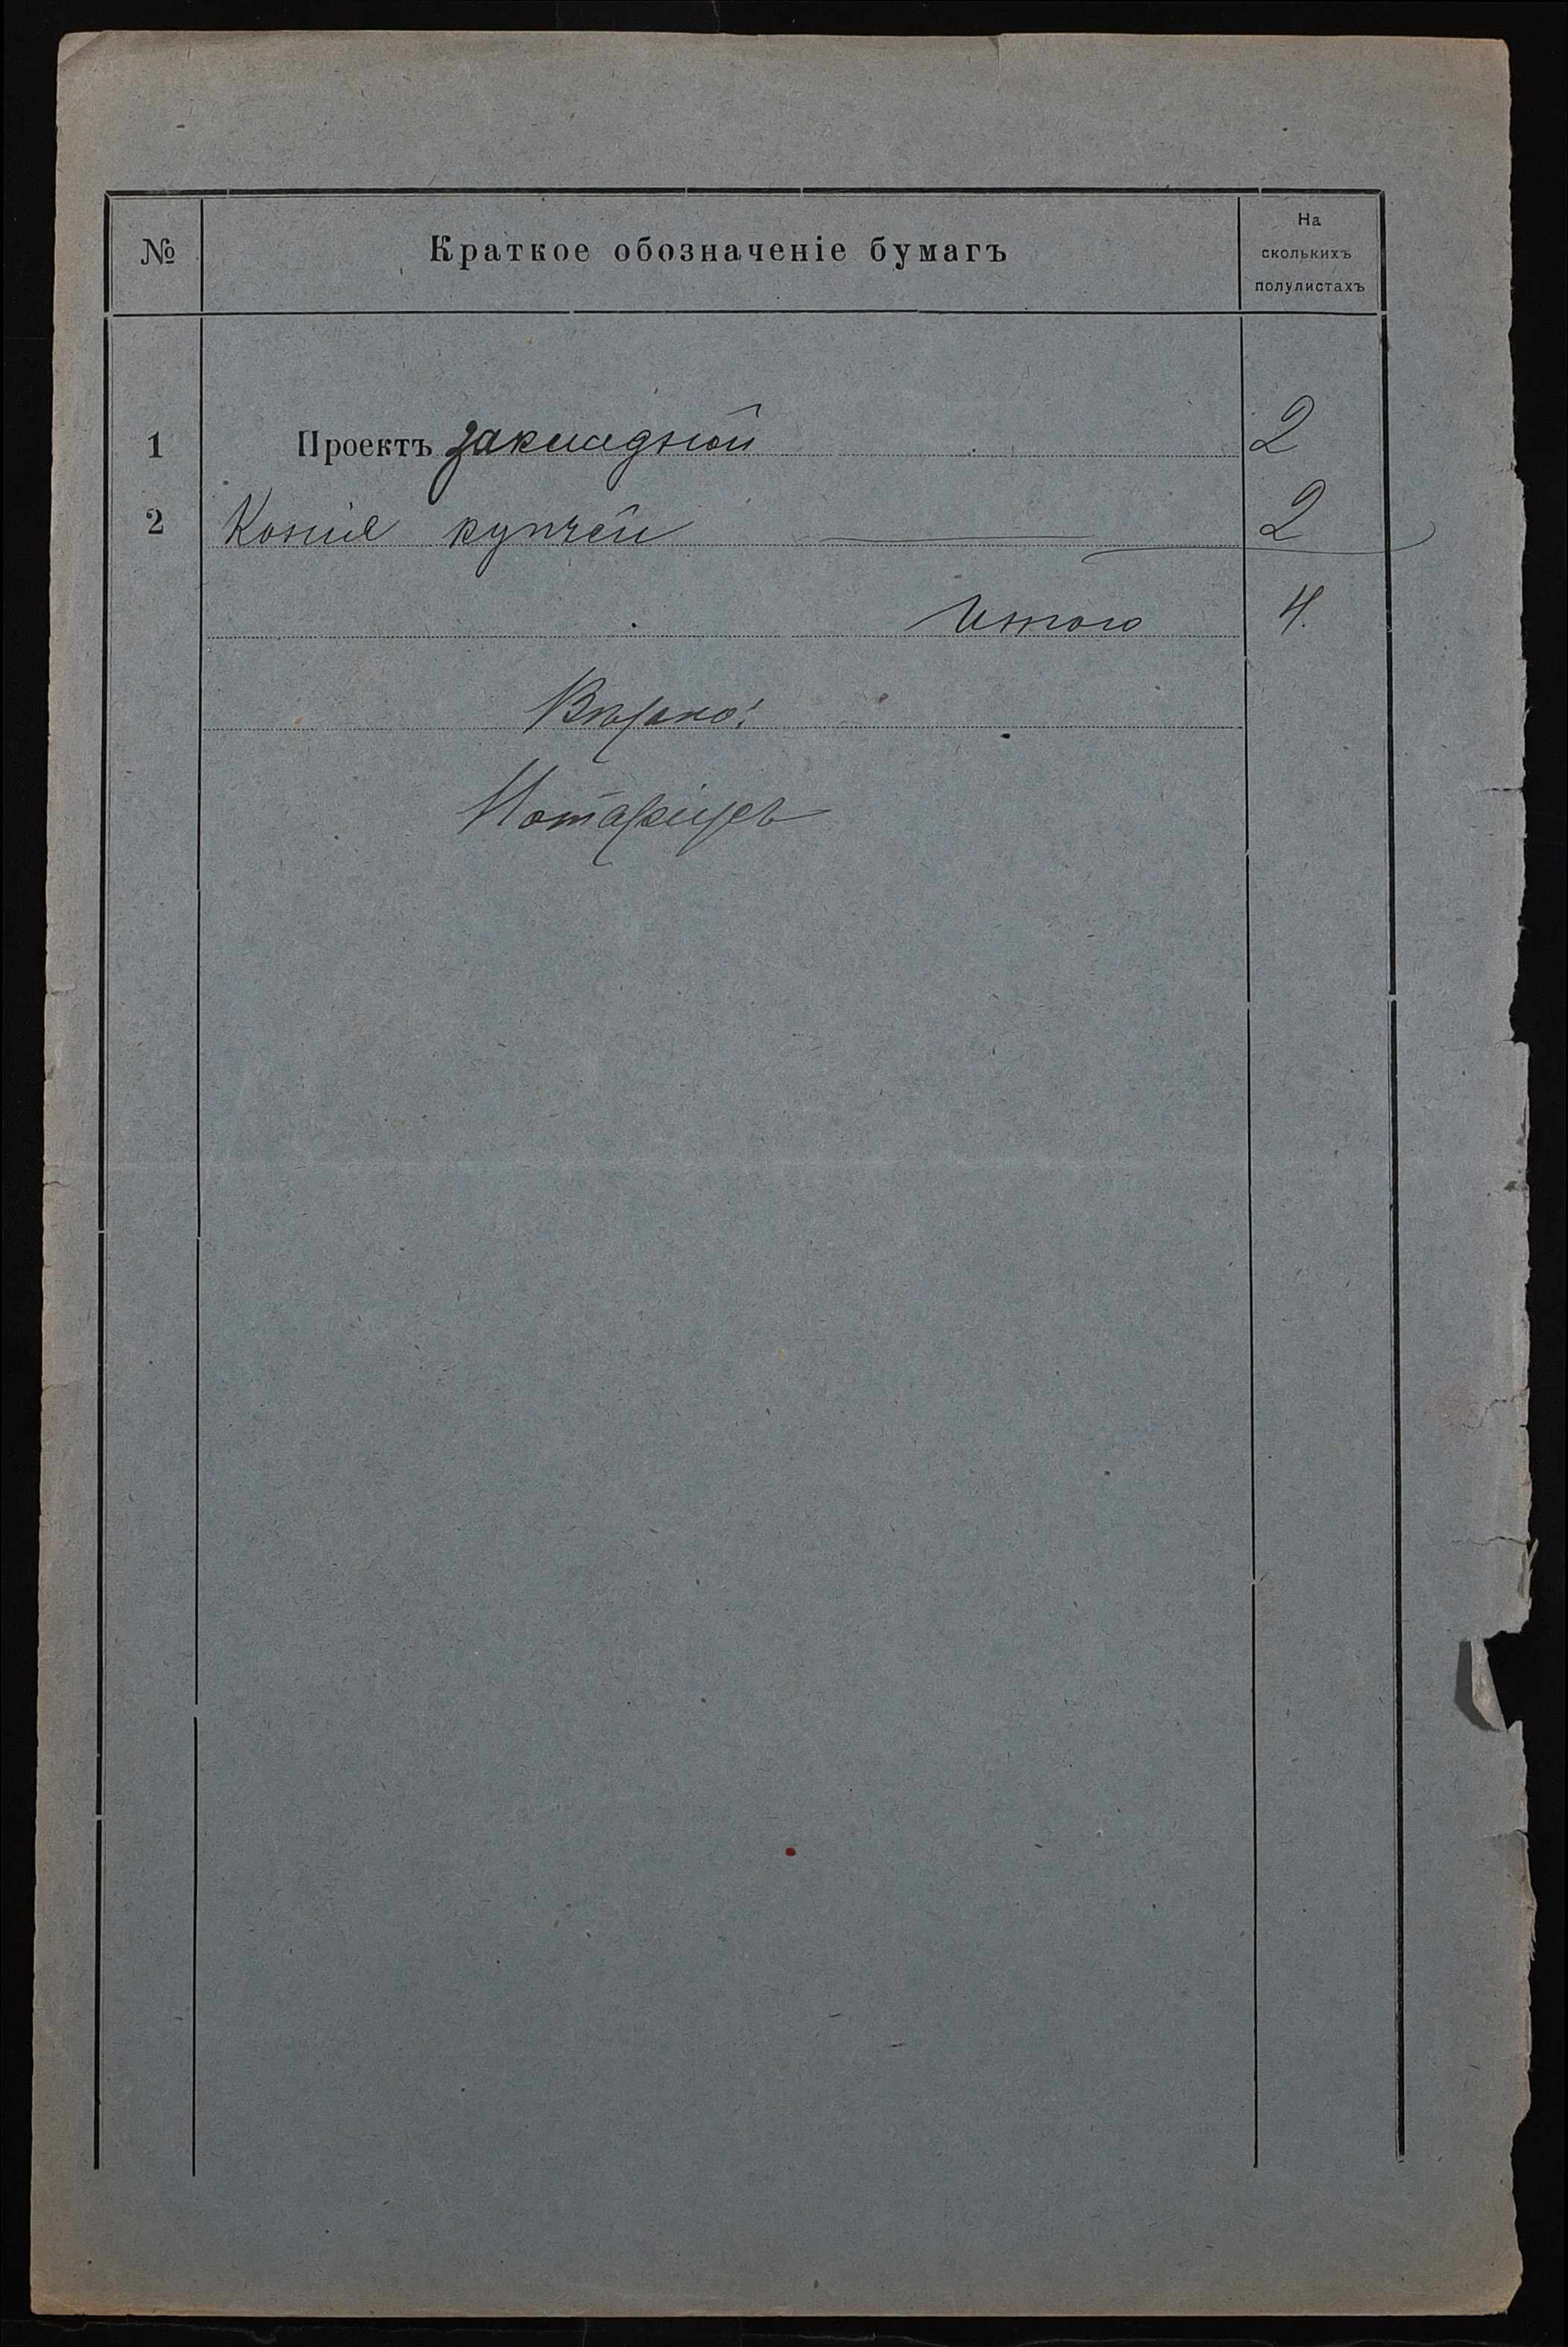 № Краткое обозначеніе бумагъ На
сколькихъ
полулистахъ
1 Проектъ закладной 2
2 Копія купчей 2
Итого 4.
Вѣрно:
Нотаріусъ